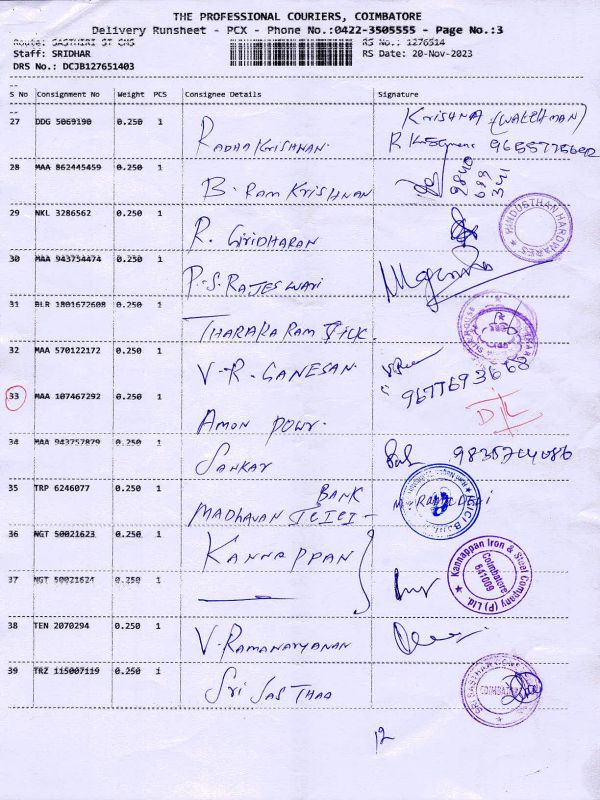 THE PROFESSIONAL COURIERS, COIMBATORE
Delivery Runsheet - PCX - Phone No.:0422-3505555 - Page No.:3
Route: SASTHIRI ST CMS RS No.: 1276514
Staff: SRIDHAR RS Date: 20-Nov-2023
DRS No.: DCJB127651403
S No Consignment No Weight PCS Consignee Details Signature
27 DDG 5069190 0.250 1 RADHA KRISHNAN. KRISHNA (WATCHMAN)
28 MAA 862445459 0.250 1 B. RAM KRISHNAN 9840
689
341
29 NKL 3286562 0.250 1 R. GIRIDHARAN HINDUSTHAN HARDWARES
30 MAA 943754474 0.250 1 P.S. RAJESWARI
31 BLR 1801672608 0.250 1 THARAKA RAM SILK.
32 MAA 570122172 0.250 1 V.R. GANESAN 9677693668
33 MAA 107467292 0.250 1 AMON POWR.
34 MAA 943757879 0.250 1 SANKAR
35 TRP 6246077 0.250 1 MADHAVAN ICICI - BANK
36 NGT 50021623 0.250 1 KANNAPPAN
37 NGT 50021624 0.250 1 Kannappan Iron & Steel Company (P) Ltd.
Coimbatore
641009
38 TEN 2070294 0.250 1 V. RAMANARYANAN
39 TRZ 115007119 0.250 1 SRI SASTHAA COIMBATORE
12